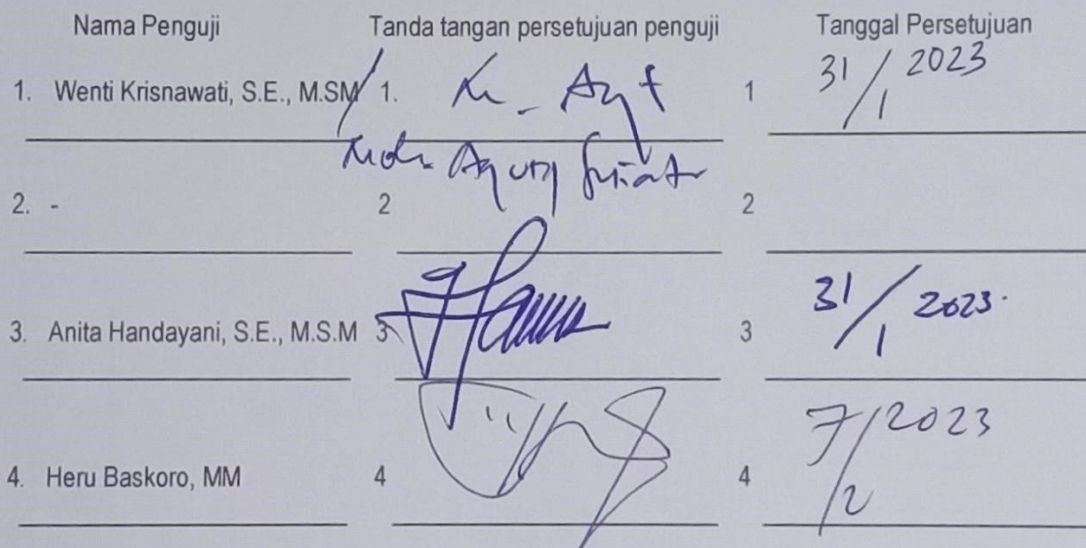 Nama Penguji Tanda tangan persetujuan penguji Tanggal Persetujuan
1. Wenti Krisnawati, S.E., M.SM 1. 1 31/1 2023
Agung
2. - 2 2
3. Anita Handayani, S.E., M.S.M 3 3 31/1 2023.
4. Heru Baskoro, MM 4 4 7/2 2023